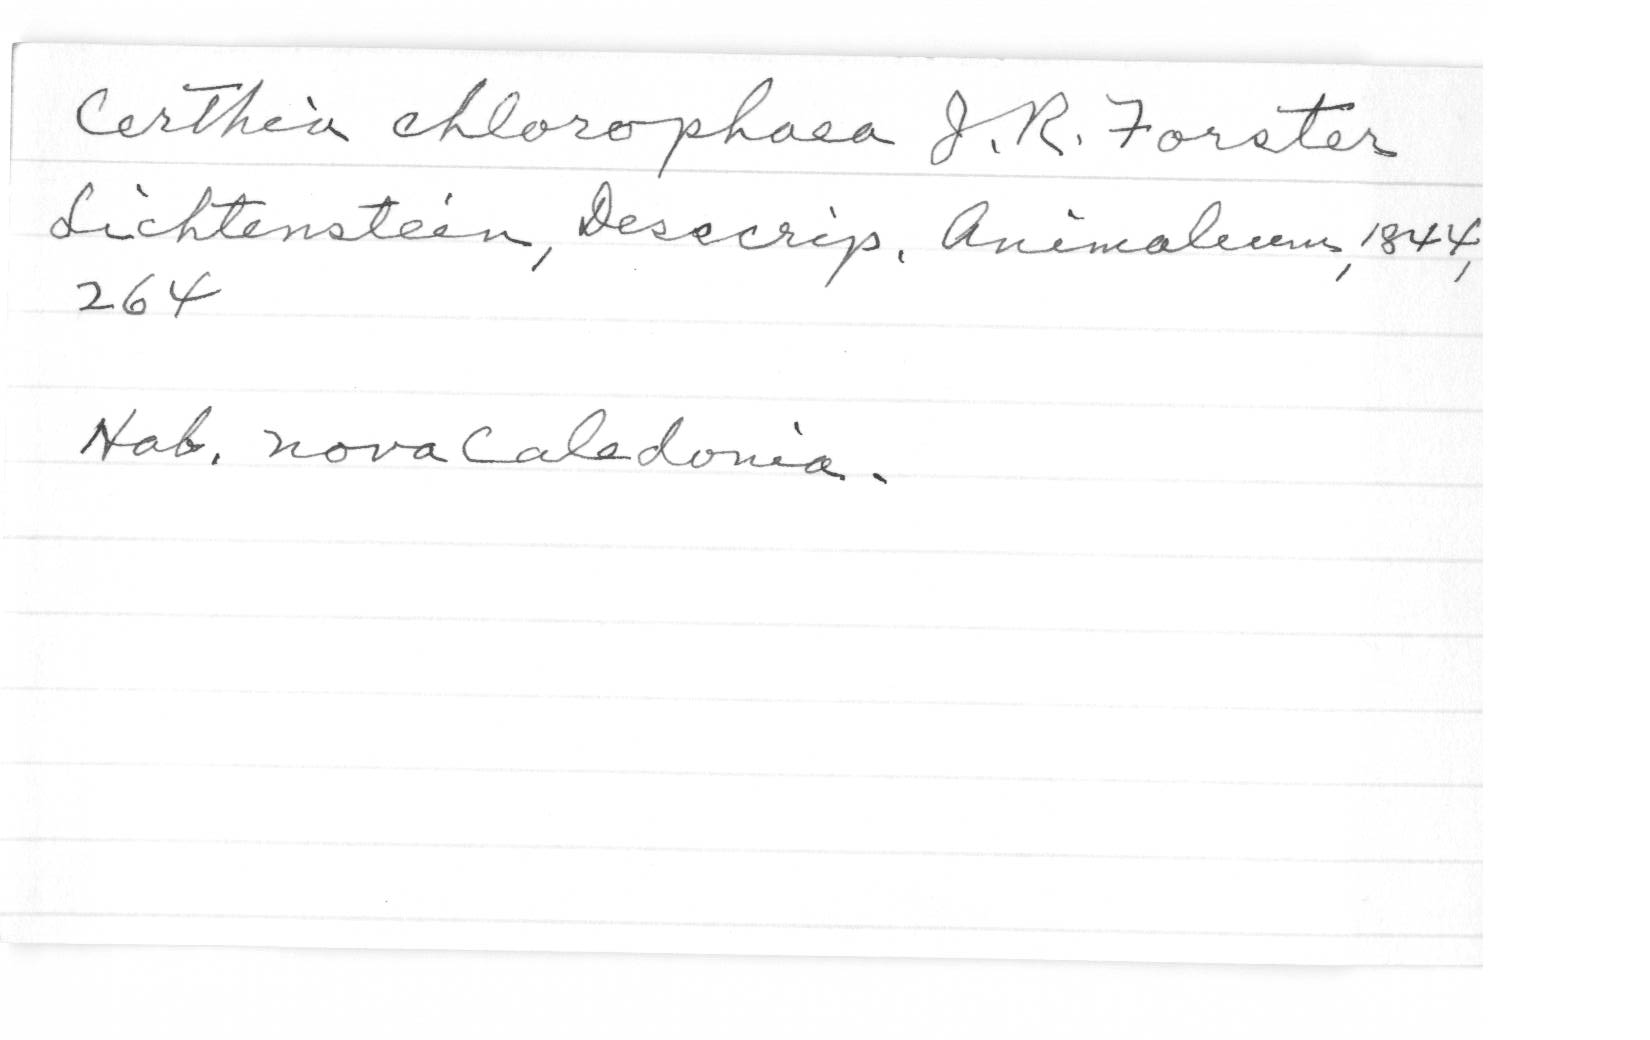 Certhia chlorophaea J. R. Forster
Lichtenstein, Descrip. Animalium, 1844,
264
Hab. nova Caledonia.